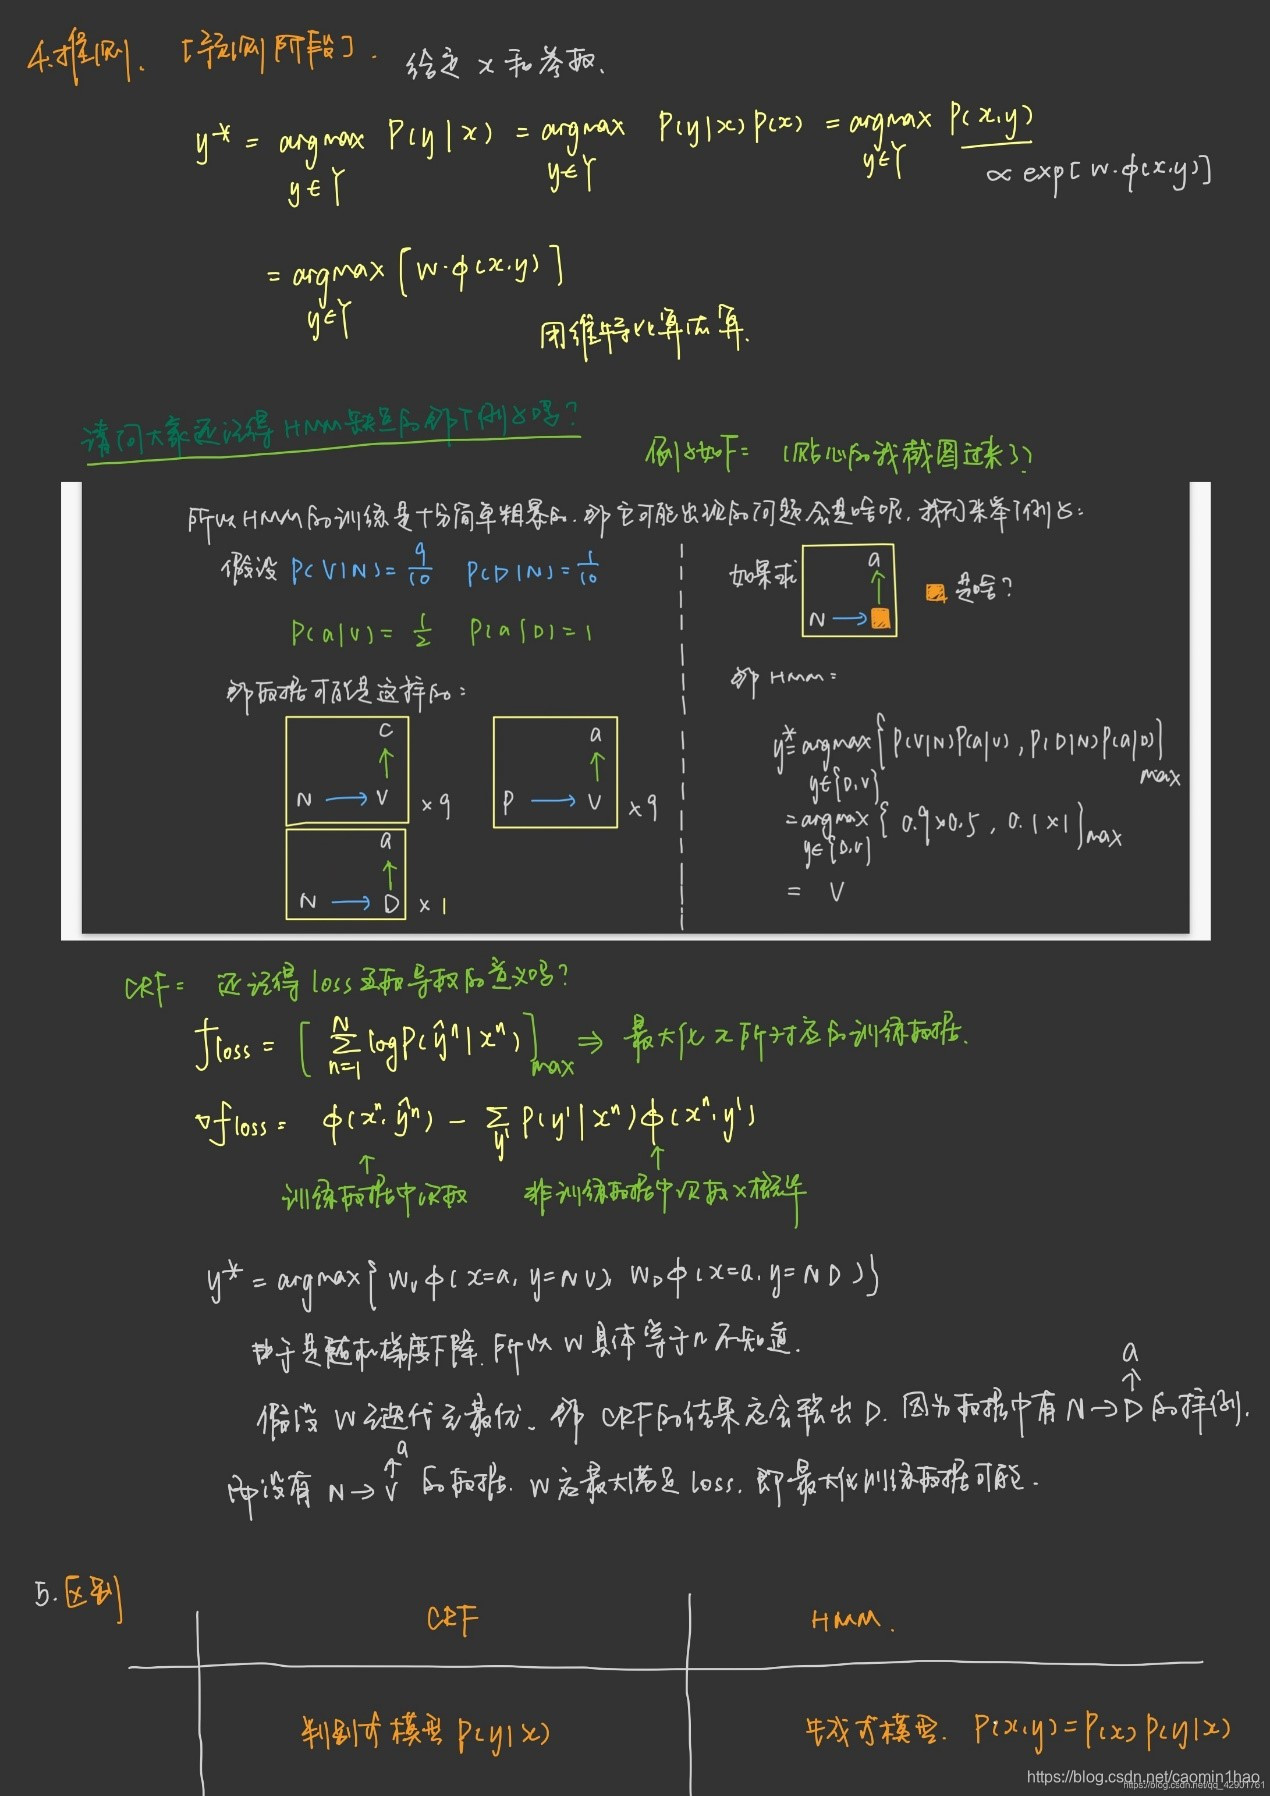 4.推测. [预测阶段]. 给定 x 和参数.
y* = argmax P(y|x) = argmax P(y|x)P(x) = argmax P(x,y)
y∈Y y∈Y y∈Y ∝ exp[w·φ(x,y)]
= argmax [w·φ(x,y)]
y∈Y
用维特比算法算.
请问大家还记得HMM缺点的那个例子吗?
例子如下: (贴心的我截图过来了)
所以HMM的训练是十分简单粗暴的. 那它可能出现的问题会是啥呢, 我们来举个例子:
假设 P(V|N)=9/10 P(D|N)=1/10
P(a|V)=1/2 P(a|D)=1
那数据可能是这样的:
c
↑
N → V ×9
a
↑
P → V ×9
a
↑
N → D ×1
如果求
a
↑
N →
是啥?
那 HMM:
y* = argmax{P(V|N)P(a|V), P(D|N)P(a|D)}max
y∈{D,V}
= argmax{0.9×0.5, 0.1×1}max
y∈{D,V}
= V
CRF: 还记得 loss 函数导数的意义吗?
floss = [ N∑n=1 logP(ŷⁿ|xⁿ) ]max ⇒ 最大化 x 所对应的训练数据.
▽floss = φ(xⁿ,ŷⁿ) - ∑y' P(y'|xⁿ)φ(xⁿ,y')
↑ ↑
训练数据中次数 非训练数据中次数×概率
y* = argmax{ Wvφ(x=a, y=NV), WDφ(x=a, y=ND)}
由于是随机梯度下降, 所以 W 具体等于n不知道.
假设 W 迭代至最优, 那 CRF的结果应会输出 D. 因为数据中有 N→D 的样例,
a
↑
没有 N→V 的数据. W应最大满足 loss, 即最大化训练数据可能.
a
↑
5. 区别
CRF HMM.
判别式模型 P(y|x) 生成式模型. P(x,y)=P(x)P(y|x)
https://blog.csdn.net/caomin1hao
https://blog.csdn.net/qq_42901761